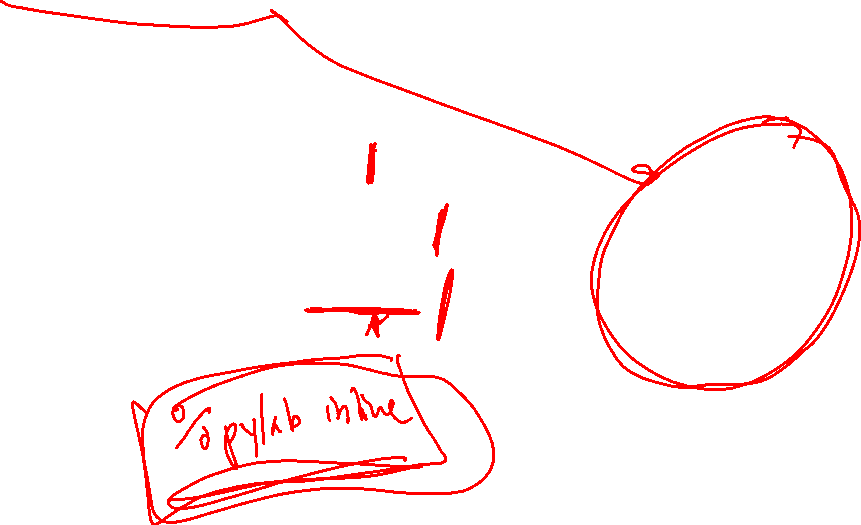 %pylab inline